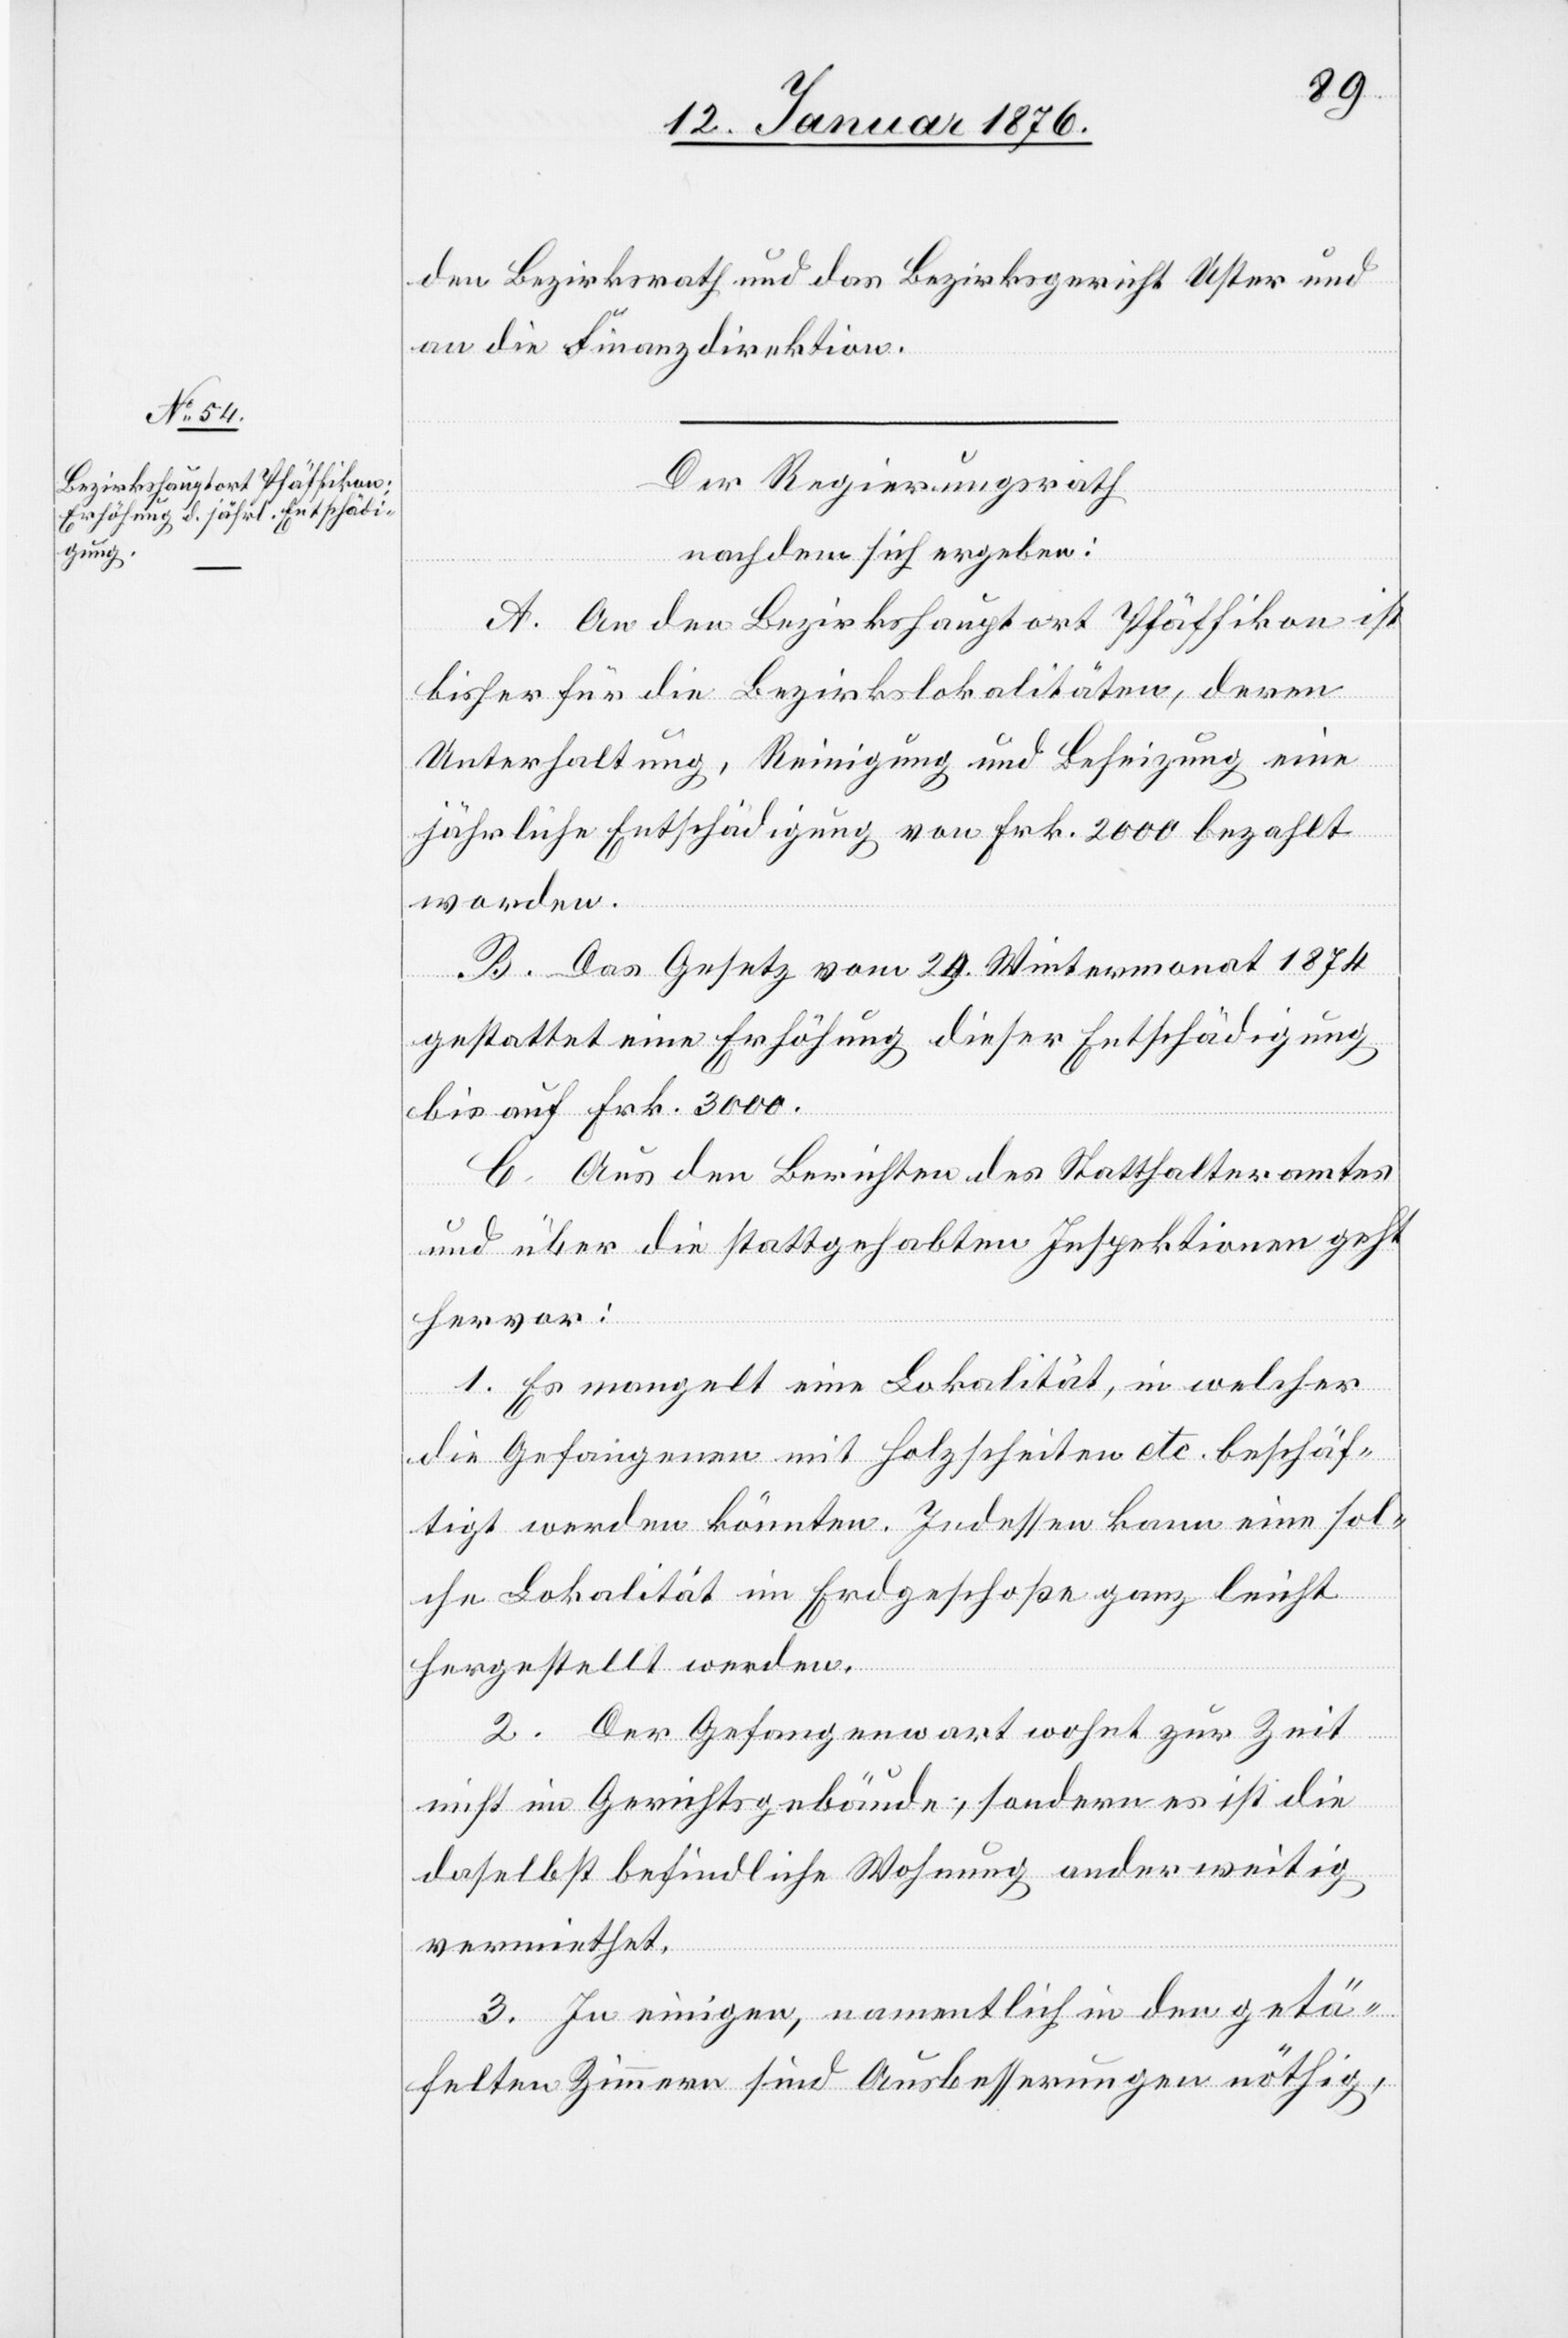 89
12. Januar 1876.
den Bezirksrath und das Bezirksgericht Uster und
an die Finanzdirektion.
No. 54.
Bezirkshauptort Pfäffikon;
Erhöhung d. jährl. Entschädi-
gung.
Der Regierungsrath
nachdem sich ergeben:
A. An den Bezirkshauptort Pfäffikon ist
bisher für die Bezirkslokalitäten, deren
Unterhaltung, Reinigung und Beheizung eine
jährliche Entschädigung von Frk. 2000 bezahlt
worden.
B. Das Gesetz vom 29. Wintermonat 1874
gestattet eine Erhöhung dieser Entschädigung
bis auf Frk. 3000.
C. Aus den Berichten des Statthalteramtes
und über die stattgehabten Inspektionen geht
hervor:
1. Es mangelt eine Lokalität, in welcher
die Gefangenen mit Holzscheiten etc. beschäf-
tigt werden könnten. Indessen kann eine sol-
che Lokalität im Erdgeschoße ganz leicht
hergestellt werden.
2. Der Gefangenwart wohnt zur Zeit
nicht im Gerichtsgebäude, sondern es ist die
daselbst befindliche Wohnung anderweitig
vermiethet.
3. In einigen, namentlich in den getä-
felten Zimmern sind Ausbesserungen nöthig,